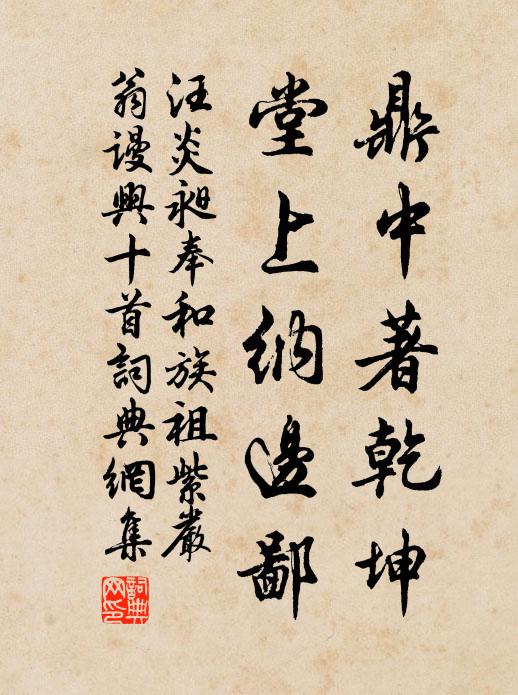 鼎中著乾坤
堂上纳邊鄙
汪炎昶奉和族祖紫巖
翁謾興十首詞典網集
詞典
网印